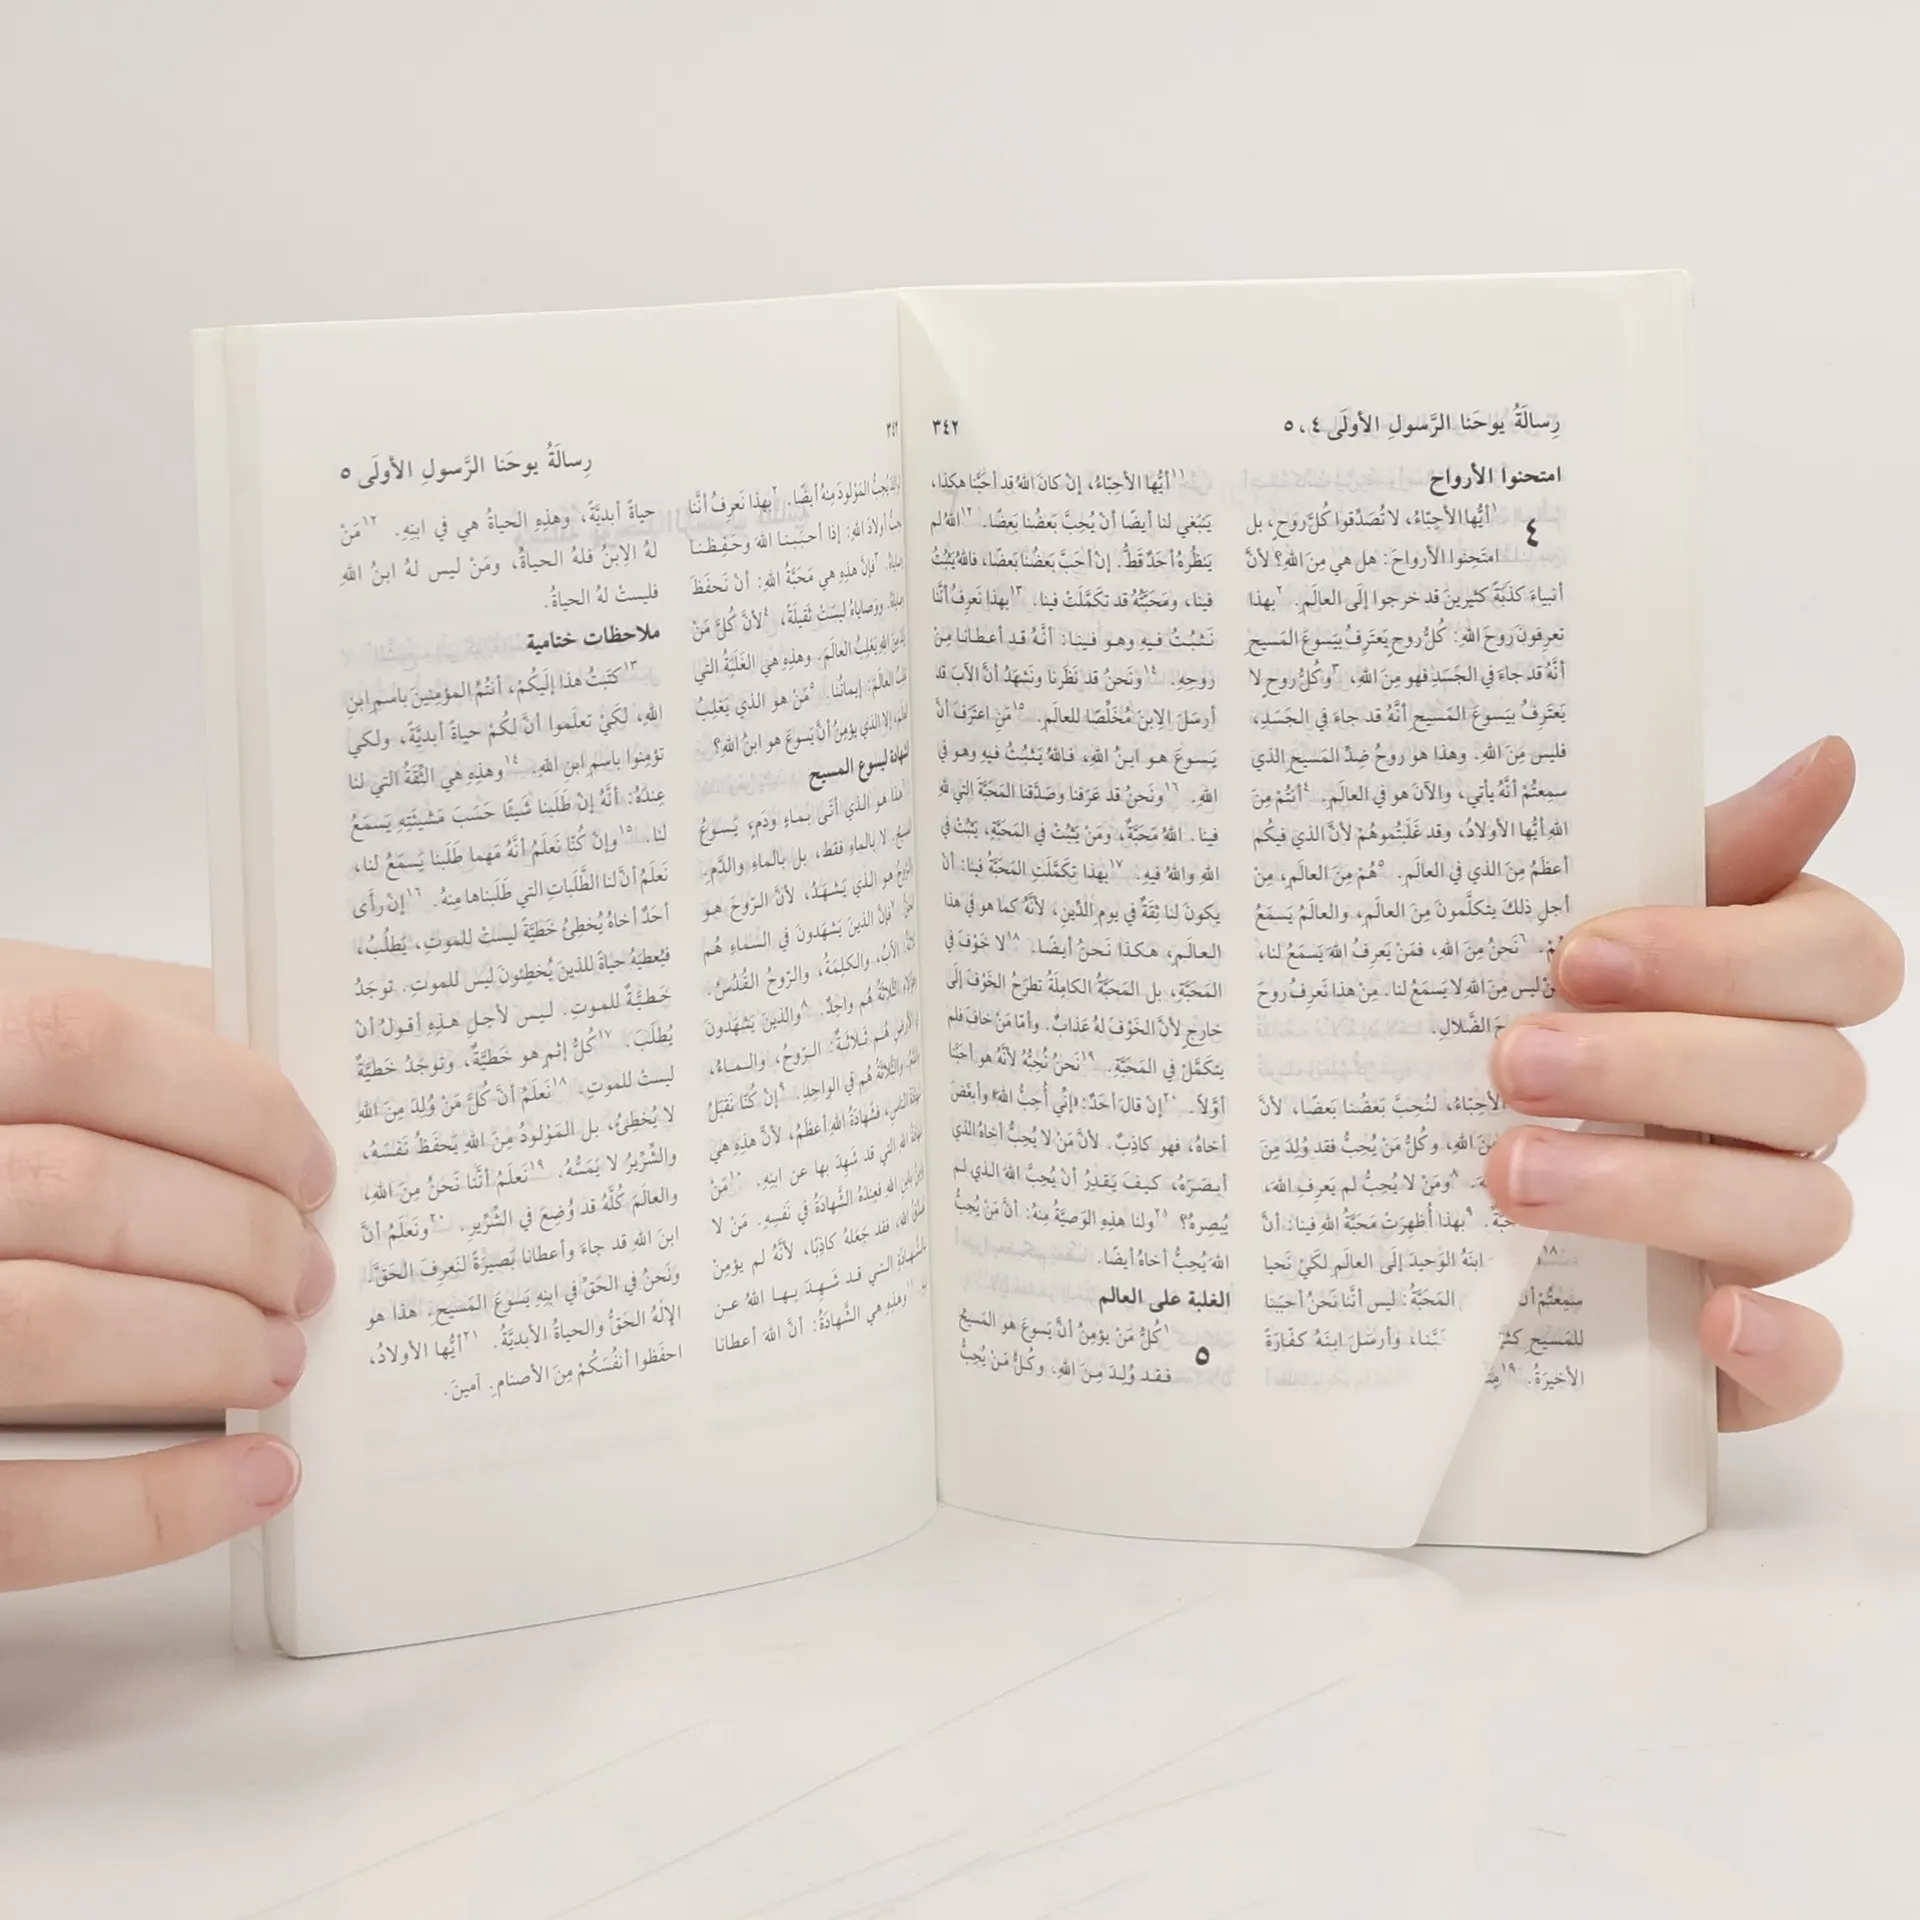 رِسالَةُ يوحَنا الرَّسولِ الأولَى ٤، ٥
٣٤٢
امتحنوا الأرواح
٤
١أيُّها الأحِبّاءُ، لا تُصَدِّقوا كُلَّ روحٍ، بل
امتَحِنوا الأرواحَ: هل هي مِنَ اللهِ؟ لأنَّ
أنبياءَ كذَبَةً كثيرينَ قد خرجوا إلَى العالَمِ. ٢بهذا
تعرِفونَ روحَ اللهِ: كُلُّ روحٍ يَعتَرِفُ بيَسوعَ المَسيحِ
أنَّهُ قد جاءَ في الجَسَدِ فهو مِنَ اللهِ، ٣وكُلُّ روحٍ لا
يَعتَرِفُ بيَسوعَ المَسيحِ أنَّهُ قد جاءَ في الجَسَدِ،
فليس مِنَ اللهِ. وهذا هو روحُ ضِدِّ المَسيحِ الذي
سمِعتُمْ أنَّهُ يأتي، والآنَ هو في العالَمِ. ٤أنتُمْ مِنَ
اللهِ أيُّها الأولادُ، وقد غَلَبتُموهُمْ لأنَّ الذي فيكُم
أعظَمُ مِنَ الذي في العالَمِ. ٥هُمْ مِنَ العالَمِ، مِنْ
أجلِ ذلكَ يتكلَّمونَ مِنَ العالَمِ، والعالَمُ يَسمَعُ
٦نَحنُ مِنَ اللهِ، فمَنْ يَعرِفُ اللهَ يَسمَعُ لنا،
ليس مِنَ اللهِ لا يَسمَعُ لنا. مِنْ هذا نَعرِفُ روحَ
الضَّلالِ.
الأحِبّاءُ، لنُحِبَّ بَعضُنا بَعضًا، لأنَّ
اللهِ، وكُلُّ مَنْ يُحِبُّ فقد وُلِدَ مِنَ
٨ومَنْ لا يُحِبُّ لم يَعرِفِ اللهَ،
٩بهذا أُظهِرَتْ مَحَبَّةُ اللهِ فينا: أنَّ
ابنَهُ الوَحيدَ إلَى العالَمِ لكَيْ نَحيا
المَحَبَّةُ: ليس أنَّنا نَحنُ أحبَبنا
وأرسَلَ ابنَهُ كفّارَةً
١٨
سمِعتُمْ أنَّ
للمَسيحِ
الأخيرَةُ. ١٩
١١أيُّها الأحِبّاءُ، إنْ كانَ اللهُ قد أحَبَّنا هكذا،
يَنبَغي لنا أيضًا أنْ يُحِبَّ بَعضُنا بَعضًا. ١٢اللهُ لم
يَنظُرهُ أحَدٌ قَطُّ. إنْ أحَبَّ بَعضُنا بَعضًا، فاللهُ يَثبُتُ
فينا، ومَحَبَّتُهُ قد تكَمَّلَتْ فينا. ١٣بهذا نَعرِفُ أنَّنا
نَثبُتُ فيهِ وهو فينا: أنَّهُ قد أعطانا مِنْ
روحِهِ. ١٤ونَحنُ قد نَظَرنا ونَشهَدُ أنَّ الآبَ قد
أرسَلَ الِابنَ مُخَلِّصًا للعالَمِ. ١٥مَنِ اعتَرَفَ أنَّ
يَسوعَ هو ابنُ اللهِ، فاللهُ يَثبُتُ فيهِ وهو في
اللهِ. ١٦ونَحنُ قد عَرَفنا وصَدَّقنا المَحَبَّةَ التي للهِ
فينا. اللهُ مَحَبَّةٌ، ومَنْ يَثبُتْ في المَحَبَّةِ، يَثبُتْ في
اللهِ واللهُ فيهِ. ١٧بهذا تكَمَّلَتِ المَحَبَّةُ فينا: أنْ
يكونَ لنا ثِقَةٌ في يومِ الدِّينِ، لأنَّهُ كما هو في هذا
العالَمِ، هكذا نَحنُ أيضًا. ١٨لا خَوْفَ في
المَحَبَّةِ، بل المَحَبَّةُ الكامِلَةُ تطرَحُ الخَوْفَ إلَى
خارِجٍ لأنَّ الخَوْفَ لهُ عَذابٌ. وأمّا مَنْ خافَ فلم
يتكَمَّلْ في المَحَبَّةِ. ١٩نَحنُ نُحِبُّهُ لأنَّهُ هو أحَبَّنا
أوَّلًا. ٢٠إنْ قالَ أحَدٌ: «إنِّي أُحِبُّ اللهَ» وأبغَضَ
أخاهُ، فهو كاذِبٌ. لأنَّ مَنْ لا يُحِبُّ أخاهُ الذي
أبصَرَهُ، كيفَ يَقدِرُ أنْ يُحِبَّ اللهَ الذي لم
يُبصِرهُ؟ ٢١ولنا هذِهِ الوَصيَّةُ مِنهُ: أنَّ مَنْ يُحِبُّ
اللهَ يُحِبُّ أخاهُ أيضًا.
الغلبة على العالم
٥
١كُلُّ مَنْ يؤمِنُ أنَّ يَسوعَ هو المَسيحُ
فقد وُلِدَ مِنَ اللهِ. وكُلُّ مَنْ يُحِبُّ
رِسالَةُ يوحَنا الرَّسولِ الأولَى ٥
يُحِبُّ المَوْلودَ مِنهُ أيضًا. ٢بهذا نَعرِفُ أنَّنا
أولادَ اللهِ: إذا أحبَبنا اللهَ وحَفِظنا
٣فإنَّ هذِهِ هي مَحَبَّةُ اللهِ: أنْ نَحفَظَ
ووَصاياهُ ليسَتْ ثَقيلَةً، ٤لأنَّ كُلَّ مَنْ
اللهِ يَغلِبُ العالَمَ. وهذِهِ هي الغَلَبَةُ التي
العالَمَ: إيمانُنا. ٥مَنْ هو الذي يَغلِبُ
إلا الذي يؤمِنُ أنَّ يَسوعَ هو ابنُ اللهِ؟
الشهادة ليسوع المسيح
هذا هو الذي أتَى بماءٍ ودَمٍ، يَسوعُ
لا بالماءِ فقط، بل بالماءِ والدَّمِ.
هو الذي يَشهَدُ، لأنَّ الرّوحَ هو
٧فإنَّ الذينَ يَشهَدونَ في السماءِ هُم
الآبُ، والكلِمَةُ، والرّوحُ القُدُسُ.
الثَّلاثَةُ هُم واحِدٌ. ٨والذينَ يَشهَدونَ
الأرضِ هُم ثَلاثَةٌ: الرّوحُ، والماءُ،
والثَّلاثَةُ هُم في الواحِدِ. ٩إنْ كُنّا نَقبَلُ
النّاسِ، فشَهادَةُ اللهِ أعظَمُ، لأنَّ هذِهِ هي
اللهِ التي قد شَهِدَ بها عن ابنِهِ. ١٠مَنْ
بابنِ اللهِ فعِندَهُ الشَّهادَةُ في نَفسِهِ. مَنْ لا
اللهَ، فقد جَعَلهُ كاذِبًا، لأنَّهُ لم يؤمِنْ
بالشَّهادَةِ التي قد شَهِدَ بها اللهُ عن
١١وهذِهِ هي الشَّهادَةُ: أنَّ اللهَ أعطانا
حياةً أبديَّةً، وهذِهِ الحياةُ هي في ابنِهِ. ١٢مَنْ
لهُ الِابنُ فلهُ الحياةُ، ومَنْ ليس لهُ ابنُ اللهِ
فليستْ لهُ الحياةُ.
ملاحظات ختامية
١٣كتَبتُ هذا إلَيكُمْ، أنتُمُ المؤمِنينَ باسمِ ابنِ
اللهِ، لكَيْ تعلَموا أنَّ لكُمْ حياةً أبديَّةً، ولكي
تؤمِنوا باسمِ ابنِ اللهِ. ١٤وهذِهِ هي الثِّقَةُ التي لنا
عِندَهُ: أنَّهُ إنْ طَلَبنا شَيئًا حَسَبَ مَشيئَتِهِ يَسمَعُ
لنا. ١٥وإنْ كُنّا نَعلَمُ أنَّهُ مَهما طَلَبنا يَسمَعُ لنا،
نَعلَمُ أنَّ لنا الطَّلَباتِ التي طَلَبناها مِنهُ. ١٦إنْ رأى
أحَدٌ أخاهُ يُخطِئُ خَطيَّةً ليستْ للموتِ، يُطلُبُ،
فيُعطيَهُ حياةً للذينَ يُخطِئونَ ليس للموتِ. توجَدُ
خَطيَّةٌ للموتِ. ليس لأجلِ هذِهِ أقولُ أنْ
يُطلَبَ. ١٧كُلُّ إثمٍ هو خَطيَّةٌ، وتوجَدُ خَطيَّةٌ
ليستْ للموتِ. ١٨نَعلَمُ أنَّ كُلَّ مَنْ وُلِدَ مِنَ اللهِ
لا يُخطِئُ، بل المَوْلودُ مِنَ اللهِ يَحفَظُ نَفسَهُ،
والشِّرِّيرُ لا يَمَسُّهُ. ١٩نَعلَمُ أنَّنا نَحنُ مِنَ اللهِ،
والعالَمَ كُلَّهُ قد وُضِعَ في الشِّرِّيرِ. ٢٠ونَعلَمُ أنَّ
ابنَ اللهِ قد جاءَ وأعطانا بَصيرَةً لنَعرِفَ الحَقَّ.
ونَحنُ في الحَقِّ في ابنِهِ يَسوعَ المَسيحِ. هذا هو
الإلهُ الحَقُّ والحياةُ الأبديَّةُ. ٢١أيُّها الأولادُ،
احفَظوا أنفُسَكُمْ مِنَ الأصنامِ. آمينَ.